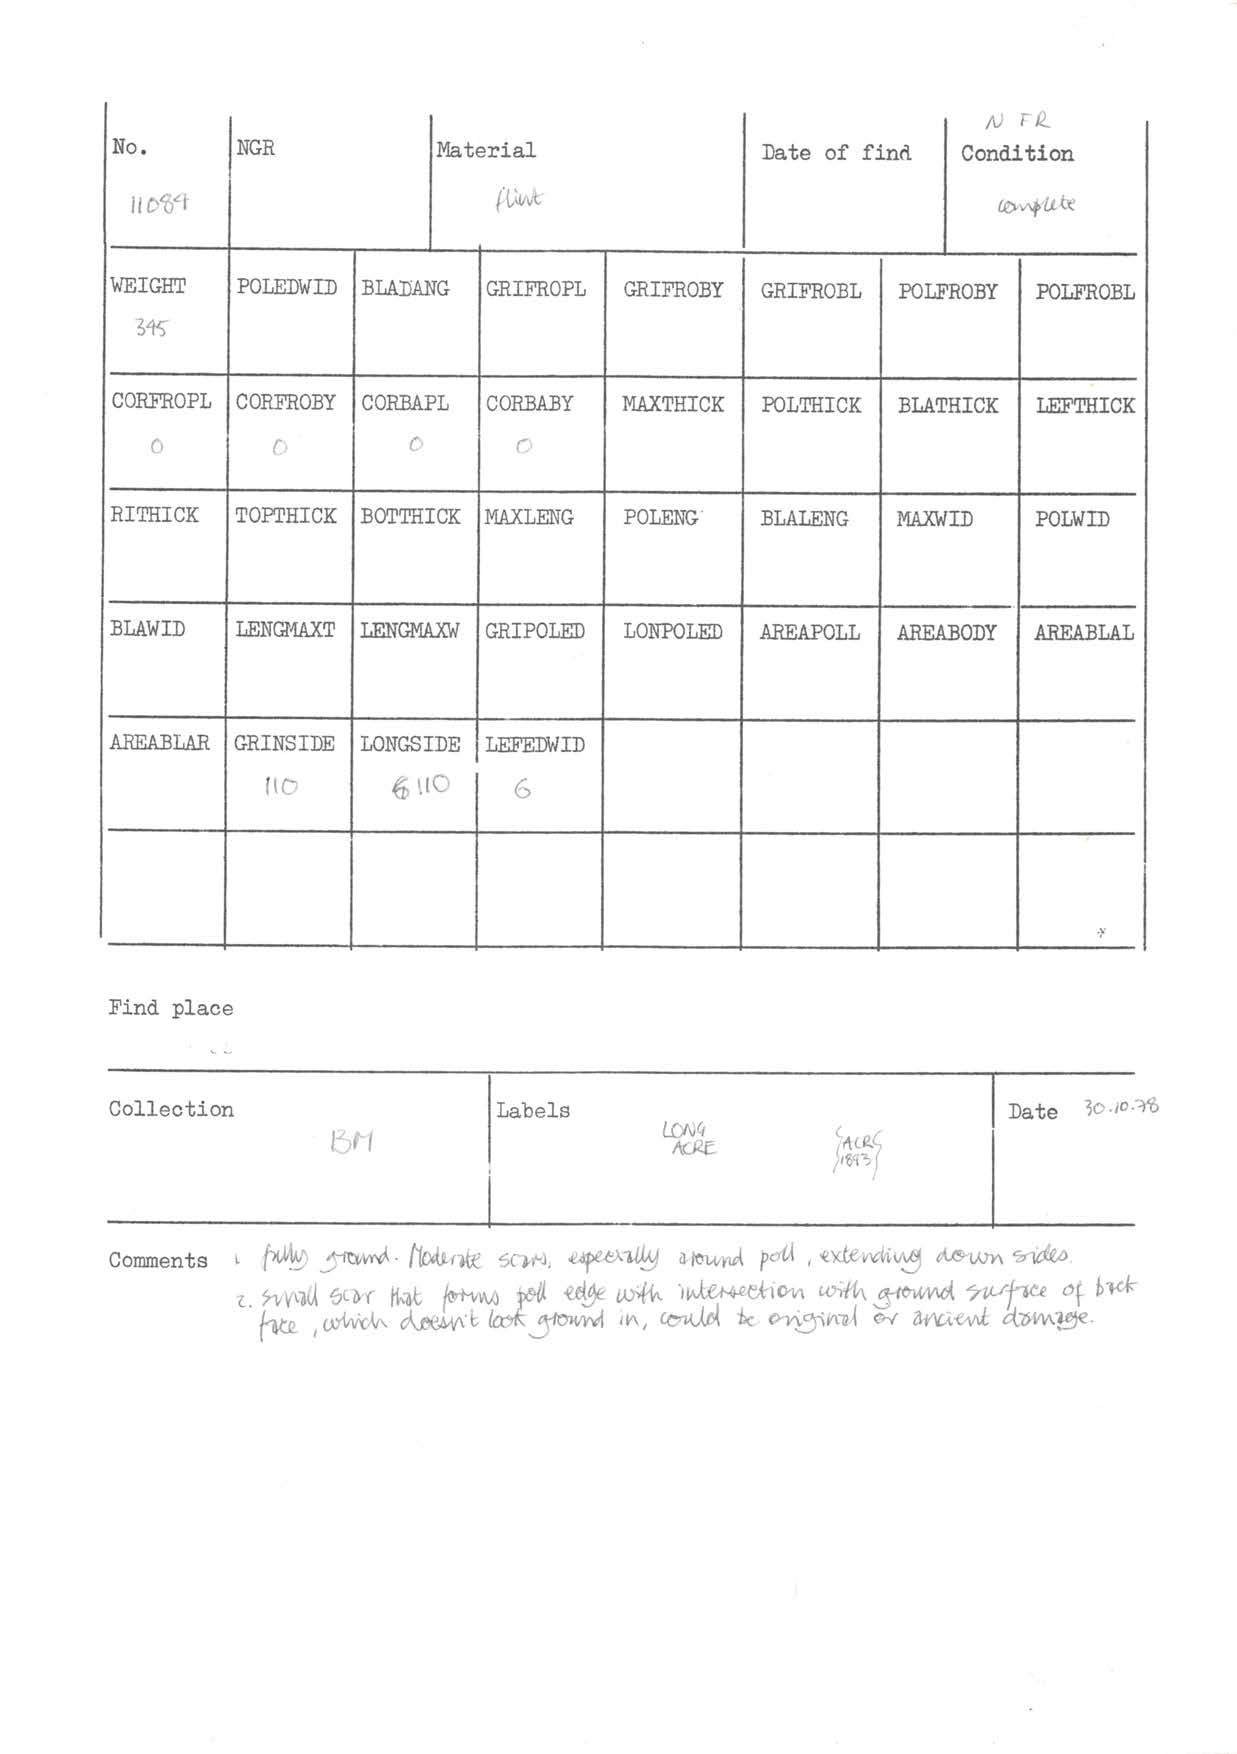 N FR
No. NGR Material Date of find Condition
11084 flint complete
WEIGHT POLEDWID BLADANG GRIFROPL GRIFROBY GRIFROBL POLFROBY POLFROBL
345
CORFROPL CORFROBY CORBAPL CORBABY MAXTHICK POLTHICK BLATHICK LEFTHICK
0 0 0 0
RITHICK TOPTHICK BOTTHICK MAXLENG POLENG BLALENG MAXWID POLWID
BLAWID LENGMAXT LENGMAXW GRIPOLED LONPOLED AREAPOLL AREABODY AREABLAL
AREABLAR GRINSIDE LONGSIDE LEFEDWID
110 110 6
Find place
Collection Labels Date 30.10.78
BM LONG ACRE
ACR 1893
Comments 1. fully ground. Moderate scars, especially around poll, extending down sides.
2. small scar that forms poll edge with intersection with ground surface of back
face, which doesn't look ground in, could be original or ancient damage.